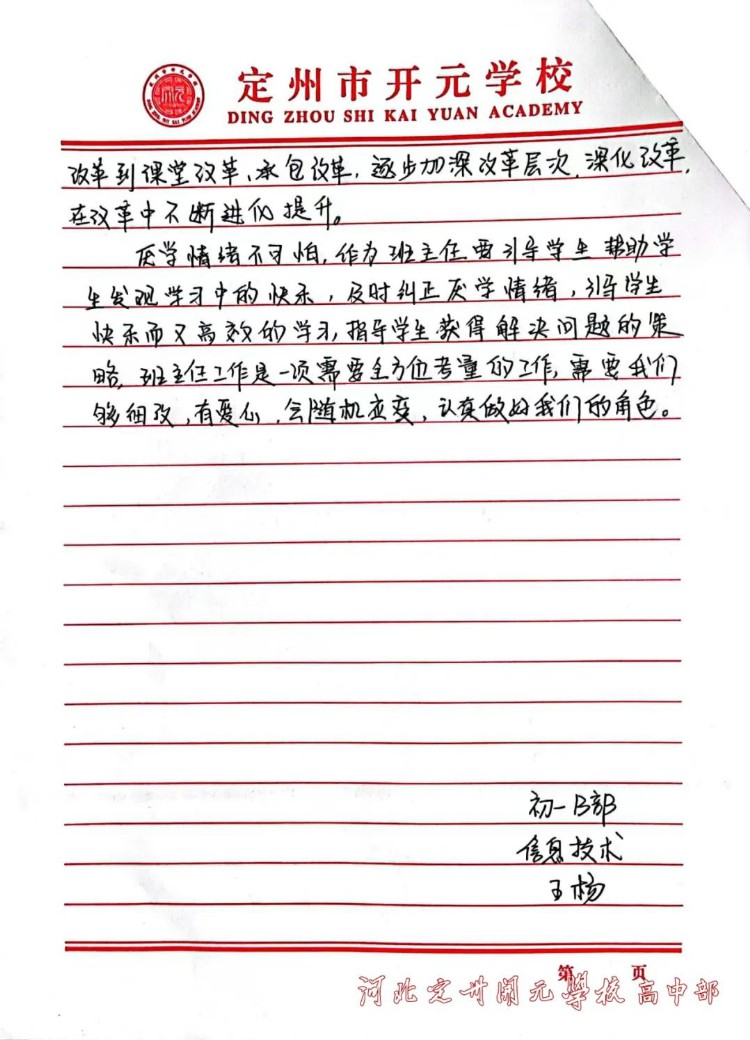 定州市开元学校
DING ZHOU SHI KAI YUAN ACADEMY
改革到课堂改革、承包改革,逐步加深改革层次,深化改革,
在改革中不断进化提升。
厌学情绪不可怕,作为班主任要引导学生帮助学
生发现学习中的快乐,及时纠正厌学情绪,引导学生
快乐而又高效的学习,指导学生获得解决问题的策
略。班主任工作是一项需要全方位考量的工作,需要我们
够细致,有爱心,会随机应变,认真做好我们的角色。
初一B部
信息技术
王杨
第 页
河北定州開元學校高中部